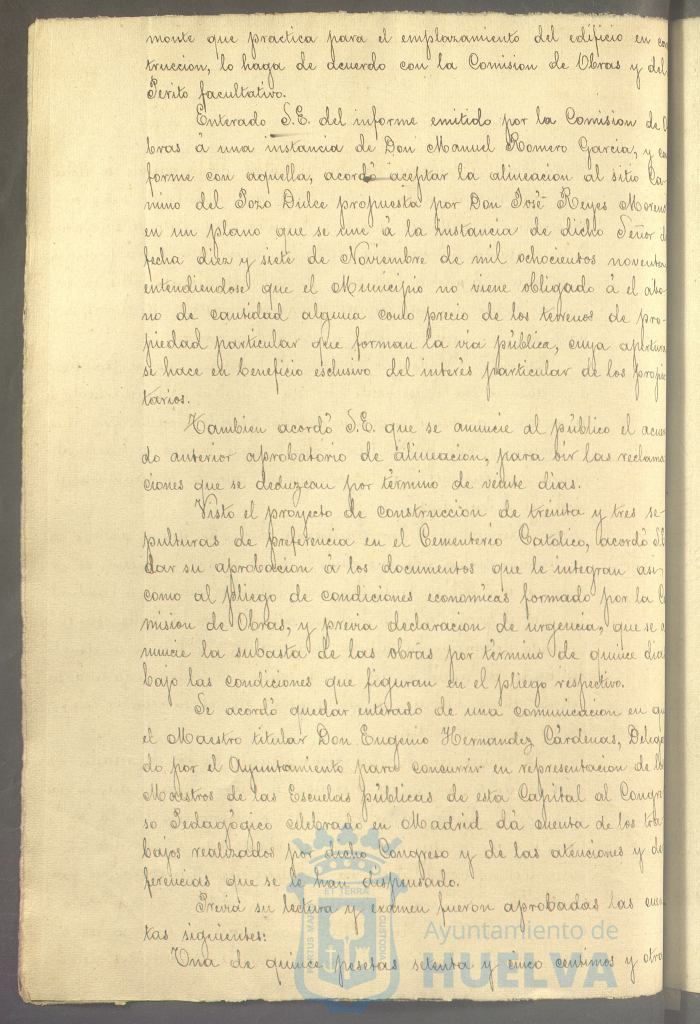 monte que practica para el emplazamiento del edificio en co
truccion, lo haga de acuerdo con la Comision de Obras y del
Perito facultativo.
Enterado S.E. del informe emitido por la Comision de O
bras á una instancia de Don Manuel Romero Garcia, y co
forme con aquella, acordó aceptar la alineacion al sitio Ca-
mino del Pozo Dulce propuesta por Don José Reyes Moreno
en un plano que se une á la instancia de dicho Señor d
fecha diez y siete de Noviembre de mil ochocientos noventa
entendiendose que el Municipio no viene obligado á el abo-
no de cantidad alguna como precio de los terrenos de pro-
piedad particular que forman la via pública, cuya apertura
se hace en beneficio esclusivo del interés particular de los propie
tarios.
Tambien acordó S.E. que se anuncie al público el acuer
do anterior aprobatorio de alineacion, para oir las reclama
ciones que se deduzcan por término de veinte dias.
Visto el proyecto de construccion de treinta y tres se-
pulturas de preferencia en el Cementerio Católico, acordó S.E
dar su aprobacion á los documentos que le integran asi
como al pliego de condiciones economicas formado por la Co
mision de Obras, y previa declaracion de urgencia, que se a
nuncie la subasta de las obras por término de quince dia
bajo las condiciones que figuran en el pliego respectivo.
Se acordó quedar enterado de una comunicacion en qu
el Maestro titular Don Eugenio Hernandez Cárdenas, Delega
do por el Ayuntamiento para concurrir en representacion de lo
Maestros de las Escuelas públicas de esta Capital al Congre
so Pedagógico celebrado en Madrid dá cuenta de los tra
bajos realizados por dicho Congreso y de las atenciones y de
ferencias que se le han dispensado.
Previa su lectura y examen fueron aprobadas las cuen
tas siguientes:
Una de quince pesetas setenta y cinco centimos y otra
PORTUS MARIS ET TERRAE CUSTODIA
Ayuntamiento de
HUELVA